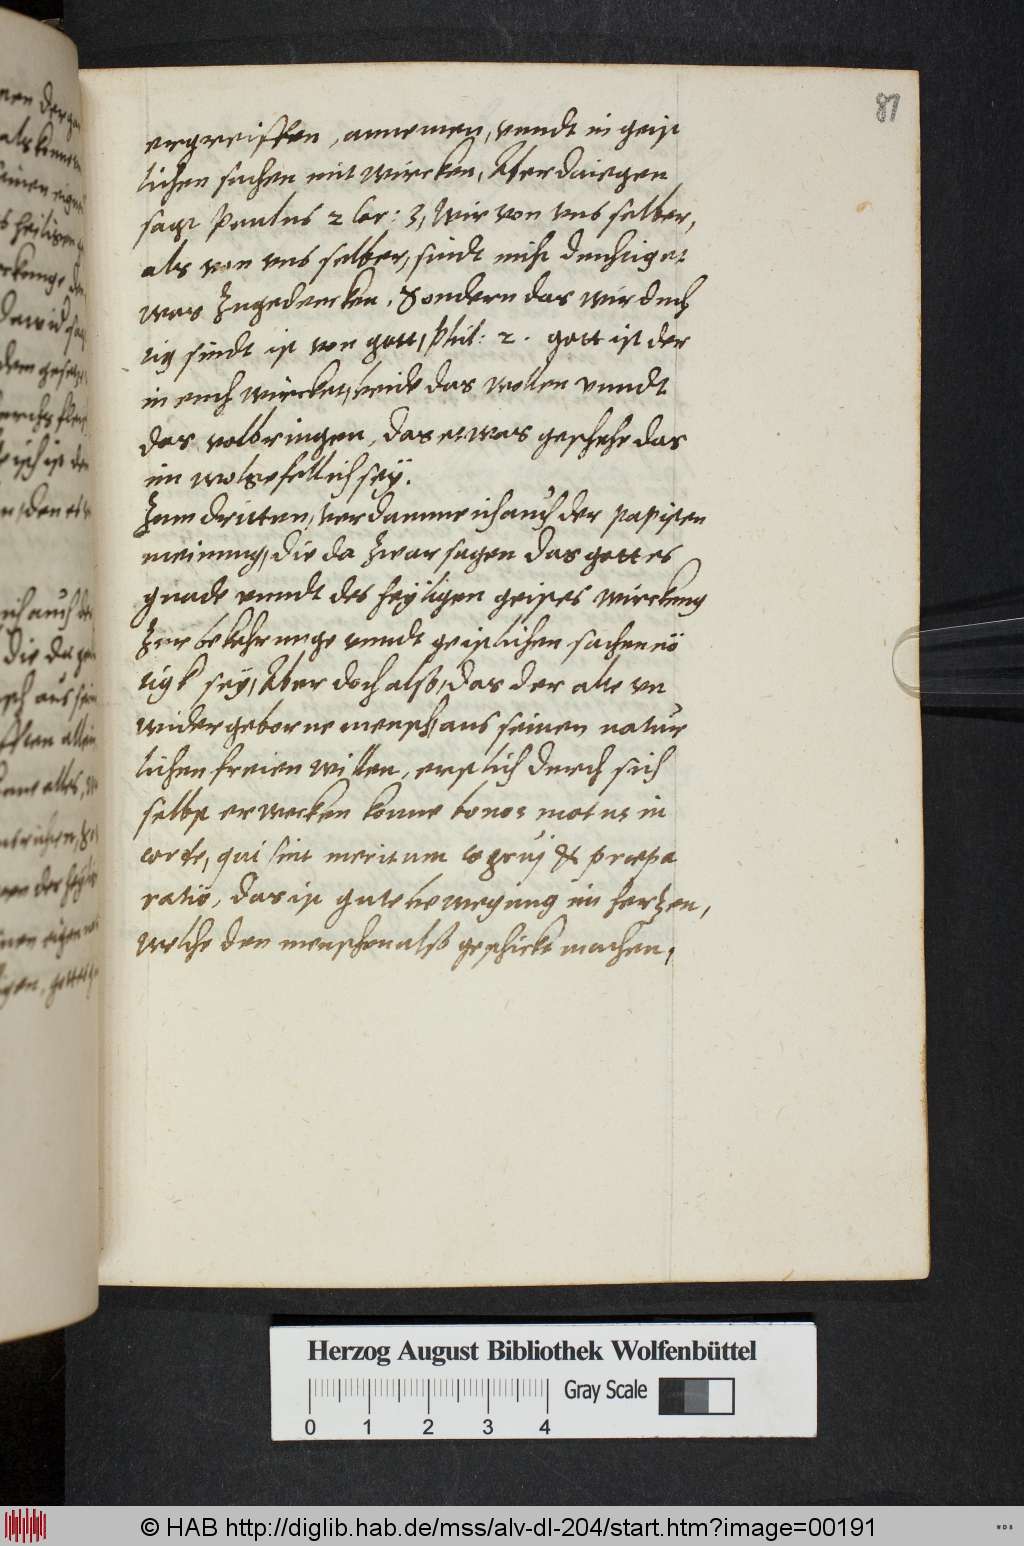 87
ergreiffen, annemen, vnndt in geist
lichen sachen mit wircken, Aber daiegen
sagt Paulus 2 Cor: 3, Wir von vns selber,
als von vns selber, sindt nicht deuchtig et
was zugedencken, Sondern das wir deuch
tig sindt ist von gott, Phil: 2. gott ist der
in euch wircket, beide das wollen vnndt
das volbringen, das etwas geschehe das
im wolgefellich sey.
Zum dritten, verdamme ich auch der papisten
meinung, die da zwar sagen das gottes
gnade vnndt des heyligen geistes wirckung
zur bekehrunge vnndt geistlichen sachen nö
tigk sey, Aber doch alß, das der alte vn
widergeborne mensch aus seinen natur
lichen freien willen, erstlich durch sich
selbst erwecken konne bonos motus in
corde, qui sint meritum cōgrui & præpa
ratiō, das ist gute bewegung im hertzen,
welche den menschen alß geschickt machen,
Herzog August Bibliothek Wolfenbüttel
Gray Scale
0 1 2 3 4
© HAB http://diglib.hab.de/mss/alv-dl-204/start.htm?image=00191